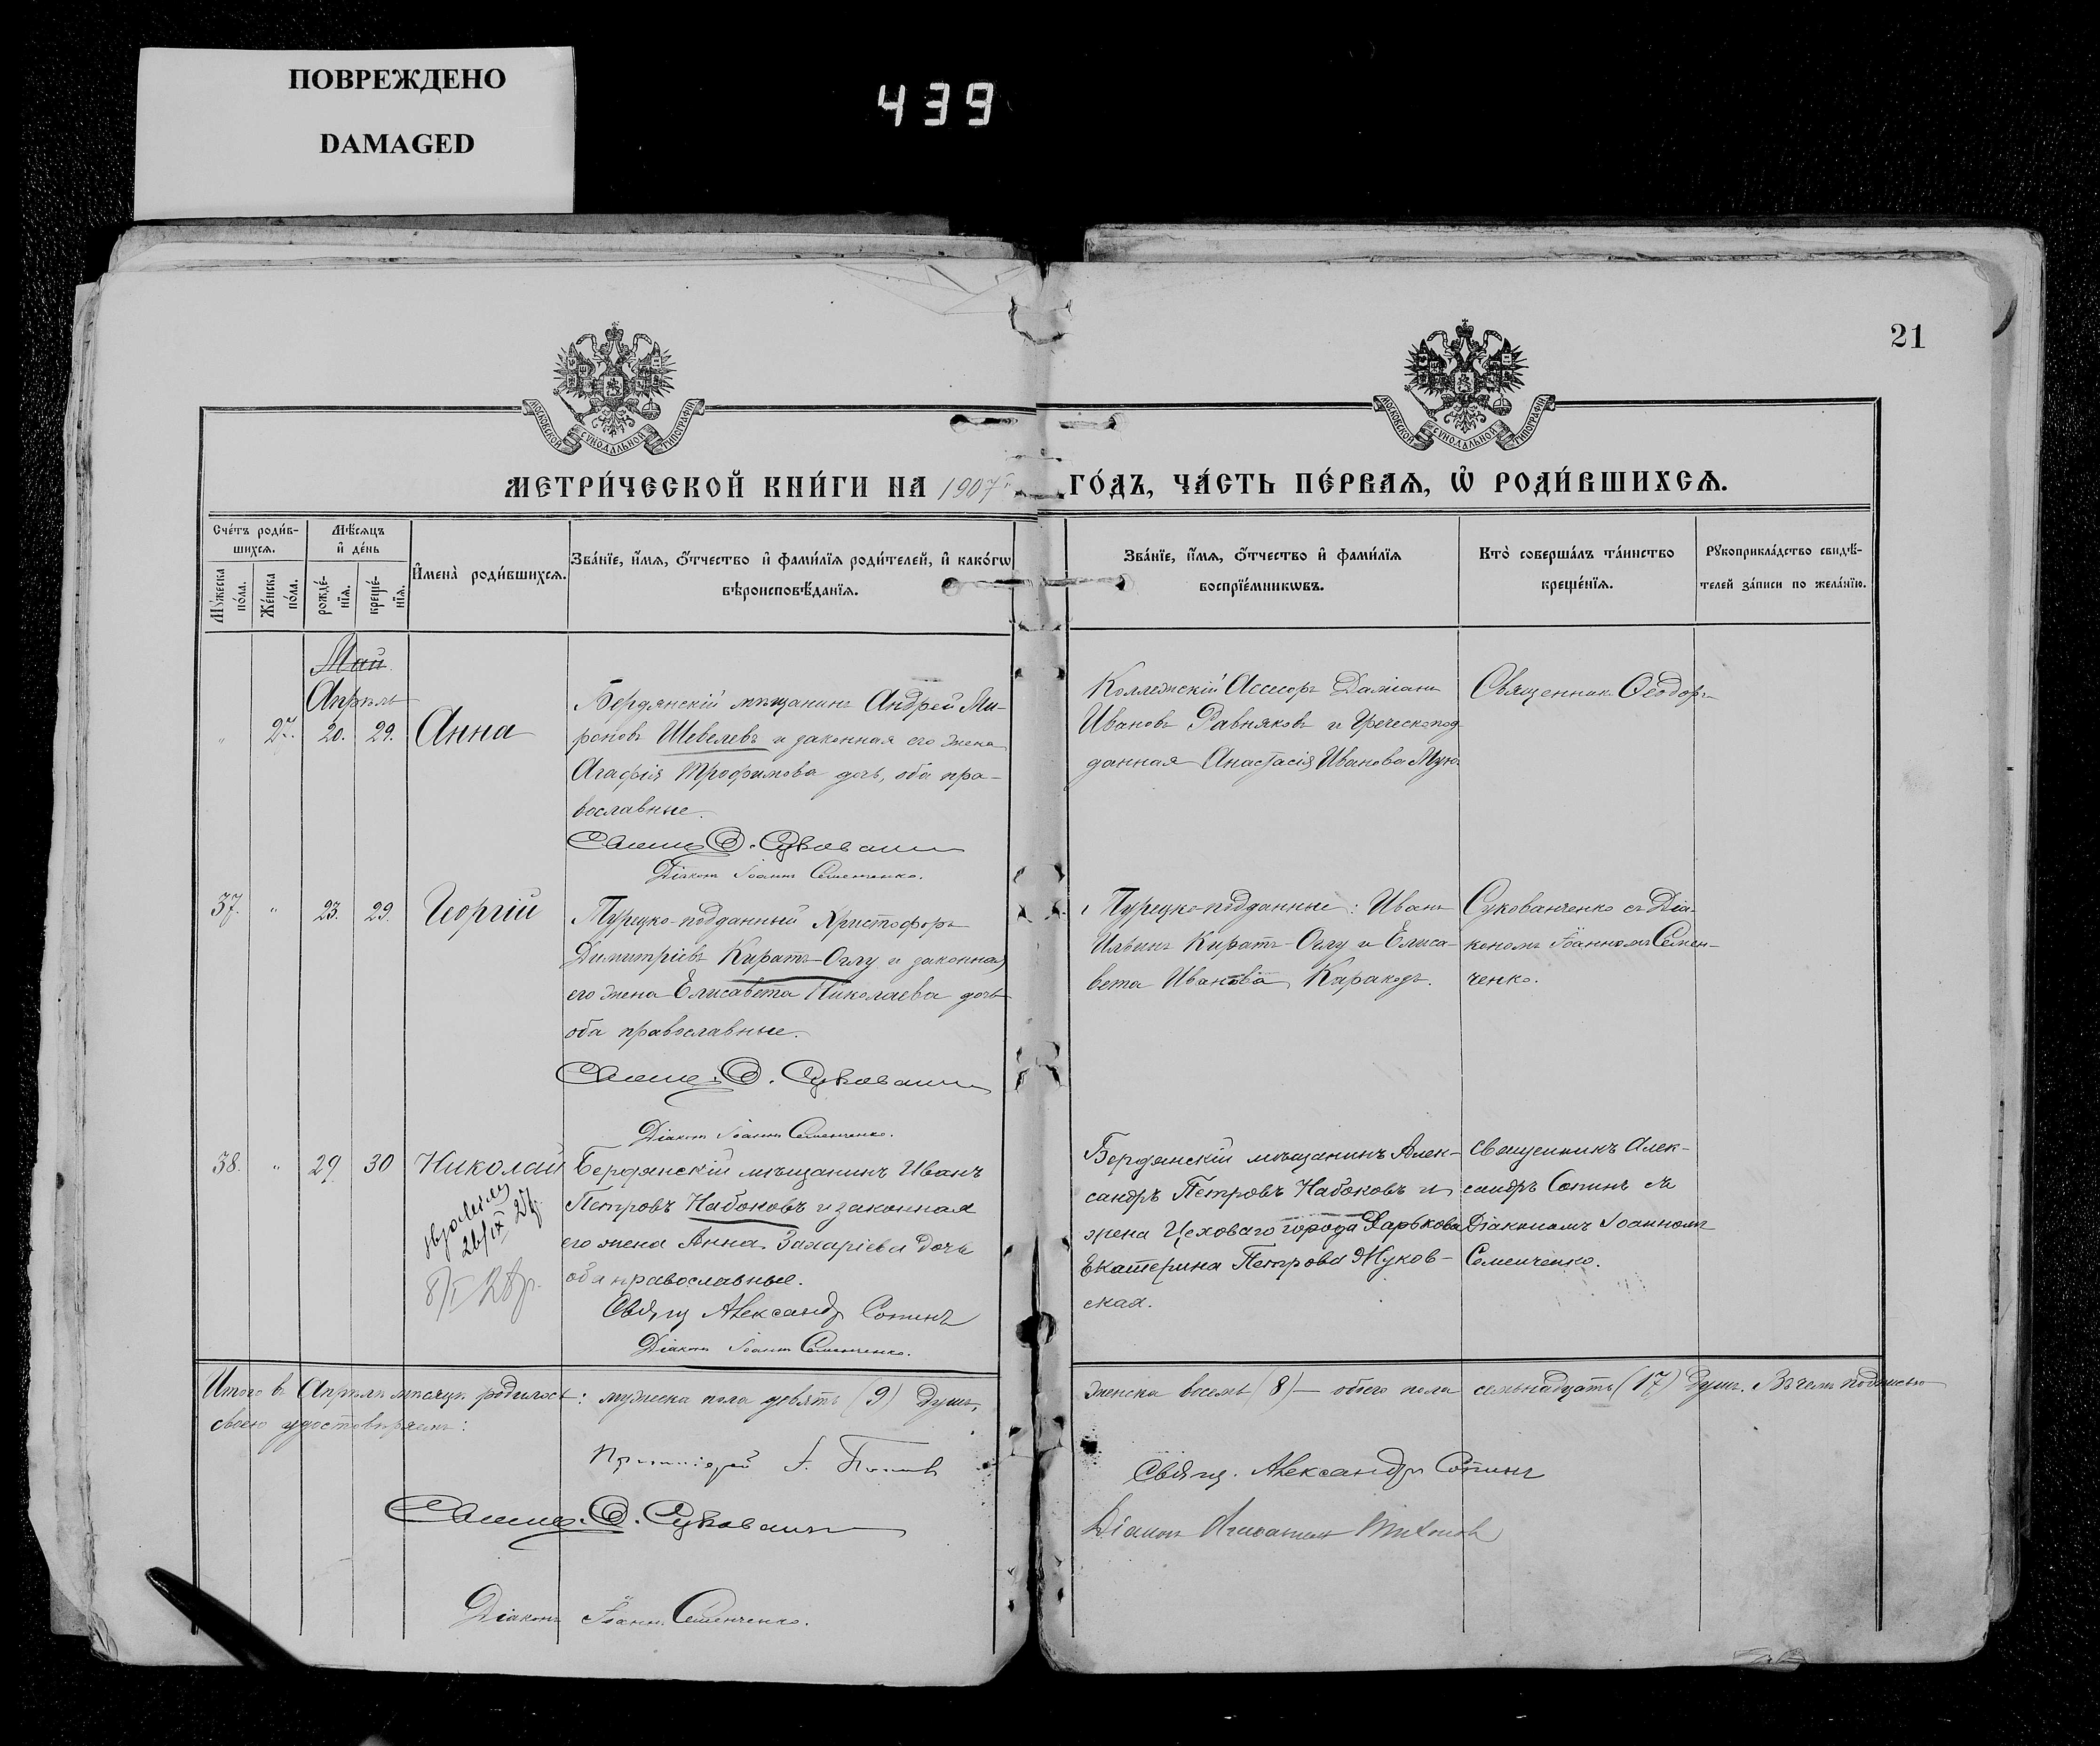 ПОВРЕЖДЕНО
DAMAGED
439
21
МОСКОВСКОЙ СѴНОДАЛЬНОЙ ТИПОГРАФІИ
МОСКОВСКОЙ СѴНОДАЛЬНОЙ ТИПОГРАФІИ
МЕТРИ́ЧЕСКОЙ КНИ́ГИ НА 1907 ГО́ДЪ, ЧА́СТЬ ПЕ́РВАѦ, Ѡ҆ РОДИ́ВШИХСѦ.
Сче́тъ роди́в-
шихсѧ.
Мꙋ́жеска
по́ла.
Же́нска
по́ла.
Мѣ́сѧцъ
и҆ де́нь
рожде́-
нїѧ.
креще́-
нїѧ.
И҆мена̀ роди́вшихсѧ.
Зва́нїе, и҆́мѧ, ѻ҆́тчество и҆ фами́лїѧ роди́телей, и҆ како́гѡ
вѣроисповѣ́данїѧ.
Зва́нїе, и҆́мѧ, ѻ҆́тчество и҆ фами́лїѧ
воспрїе́мникѡвъ.
Кто̀ соверша́лъ та́инство
креще́нїѧ.
Рꙋкоприкла́дство свидѣ́-
телей за́писи по жела́нїю.
Май
Апрѣль
" 27. 20. 29. Анна
Бердянскій мѣщанинъ Андрей Ми-
роновъ Шевелевъ и законная его жена
Агафія Трофимова дочь, оба пра-
вославные.
Свящ. Ѳ. Сукованч
Діаконъ Іоаннъ Семенченко.
Коллежскій Ассесоръ Даміанъ
Ивановъ Равняковъ и Греческопод-
данная Анастасія Иванова
Священникъ Ѳеодоръ
37. " 23. 29. Георгій
Турецко-подданный Христофоръ
Димитріевъ Киратъ-Оглу и законная
его жена Елисавета Николаева дочь
оба православные.
Свящ. Ѳ. Сукованч
Діаконъ Іоаннъ Семенченко.
Турецко-подданные: Иванъ
Ильинъ Киратъ-Оглу и Елиса-
вета Иванова
Сукованченко съ Діа-
кономъ Іоанномъ Семен-
ченко.
38. " 29 30 Николай
26/IX 27г.
8/I 28г.
Бердянскій мѣщанинъ Иванъ
Петровъ Набоковъ и законная
его жена Анна Захаріева дочь
оба православные.
Свящ Александръ Сопинъ
Діаконъ Іоаннъ Семенченко.
Бердянскій мѣщанинъ Алек-
сандръ Петровъ Набоковъ и
жена Цеховаго города Харькова
Екатерина Петрова Жуков-
ская.
Священникъ Алек-
сандръ Сопинъ съ
Діакономъ Іоанномъ
Семенченко.
Итого въ Апрѣлѣ мѣсяцѣ родилось: мужеска пола девять (9) душъ, женска восемь (8) — обоего пола семьнадцать (17) душъ. Въ чемъ подписью
своею удостовѣряемъ:
Протоіерей Поповъ
Свящ. Ѳ. Сукованч
Діаконъ Іоаннъ Семенченко.
Свящ. Александръ Сопинъ
Діаконъ Тихоновъ